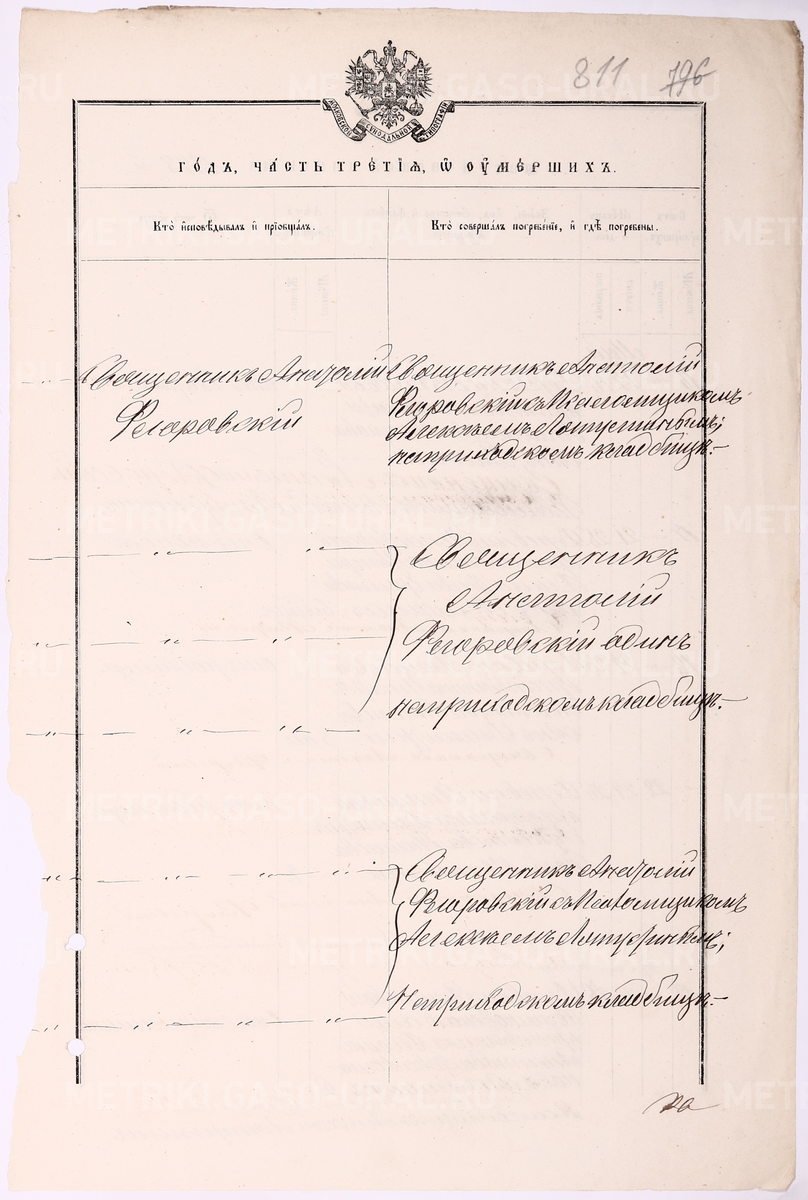 811 796
МОСКОВСКОЙ СѴНОДАЛЬНОЙ ТИПОГРАФІИ
ГО́ДЪ, ЧА́СТЬ ТРЕ́ТІѦ, Ѡ҆ ОУ҆МЕ́РШИХЪ.
Кто̀ и҆сповѣ́дывалъ и҆ прїѡбща́лъ.
Кто̀ соверша́лъ погребе́нїе, и҆ гдѣ̀ погребены̀.
Священникъ Анатолій
Флоровскій
Священникъ Анатолій
Флоровскій съ Псаломщикомъ
Алексѣемъ
на приходскомъ кладбищѣ.—
— „ — „ —
Священникъ
Анатолій
Флоровскій одинъ
на приходскомъ кладбищѣ.—
— „ — „ —
— „ — „ — „ —
— „ — „ — „ —
Священникъ Анатолій
Флоровскій съ Псаломщикомъ
Алексѣемъ
На приходскомъ кладбищѣ.—
— „ — „ — „ —
METRIKI.GASO-URAL.RU